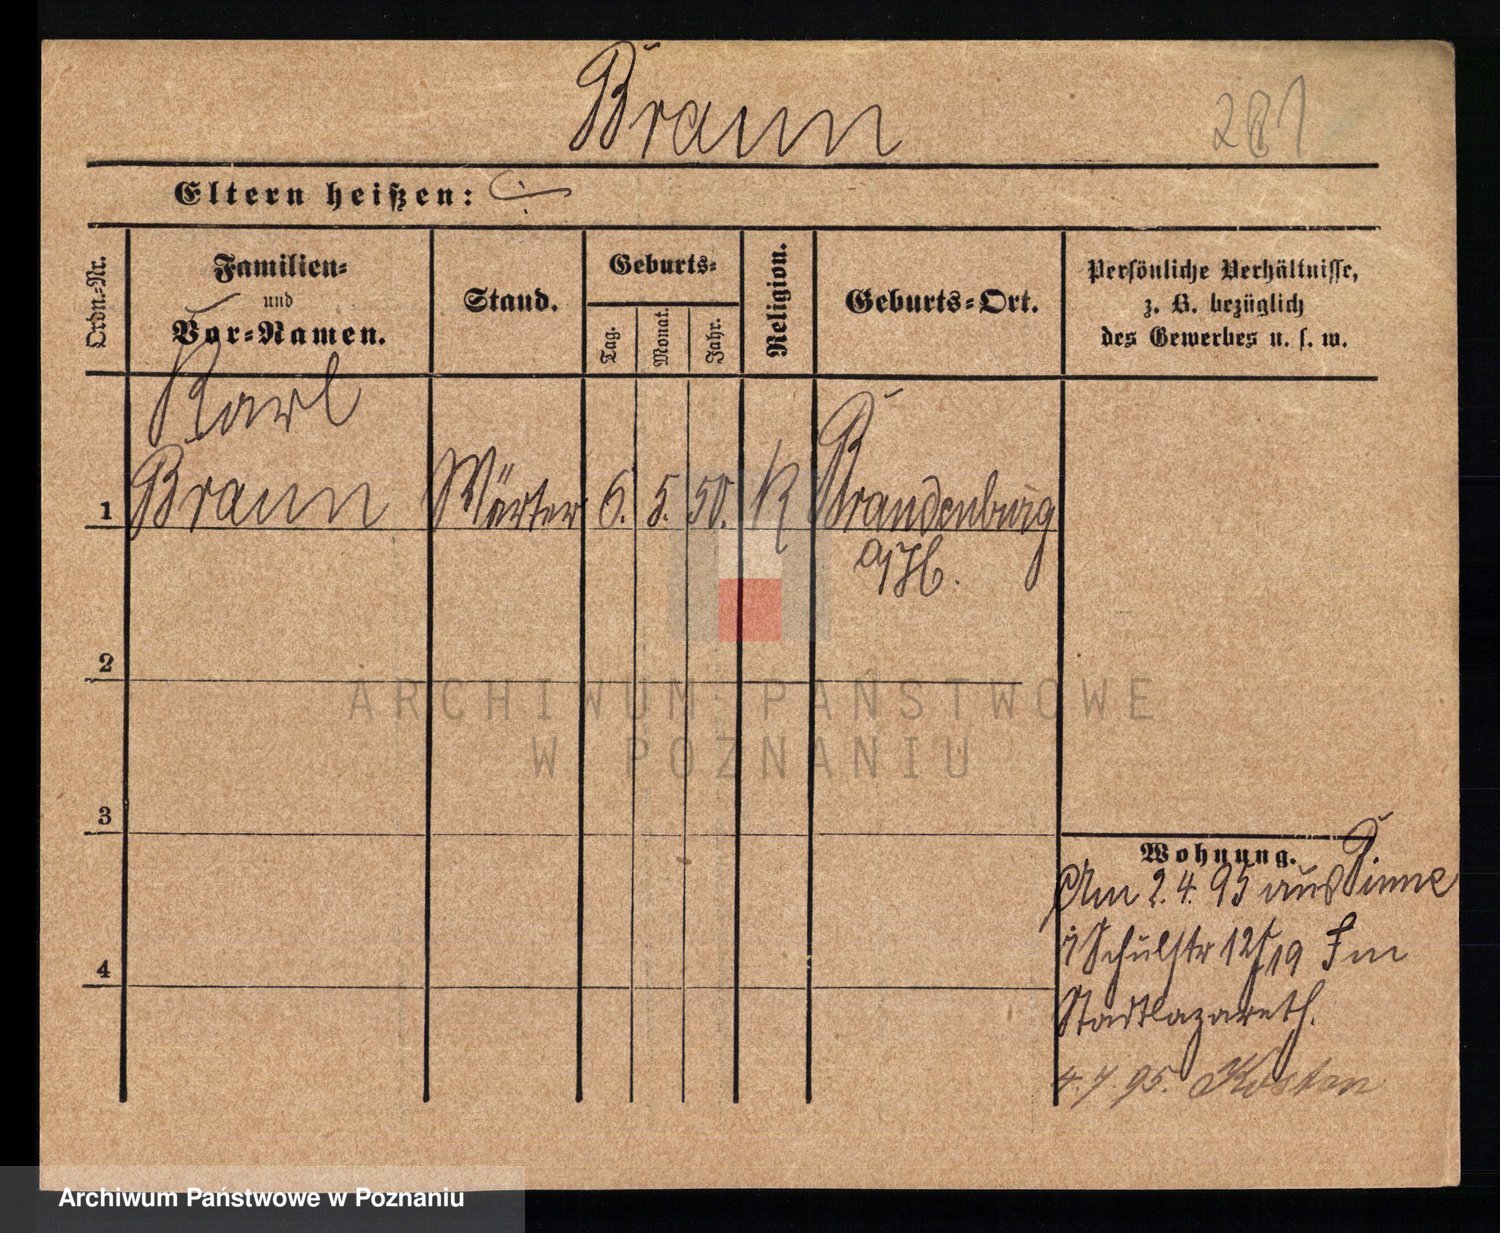 Braun
281
Eltern heißen: ./.
Ordn.-Nr.
Familien-
und
Vor-Namen.
Stand.
Geburts-
Tag.
Monat.
Jahr.
Religion.
Geburts-Ort.
Persönliche Verhältnisse,
z. B. bezüglich
des Gewerbes u. s. w.
Karl
1 Braun Wärter 6. 5. 50. K Brandenburg
a/H.
2
3
4
Wohnung.
Am 2.4.95 aus Pinne
Schulstr 12/19 Im
Stadtlazareth.
4.7.95. Kosten
ARCHIWUM PAŃSTWOWE
W POZNANIU
Archiwum Państwowe w Poznaniu